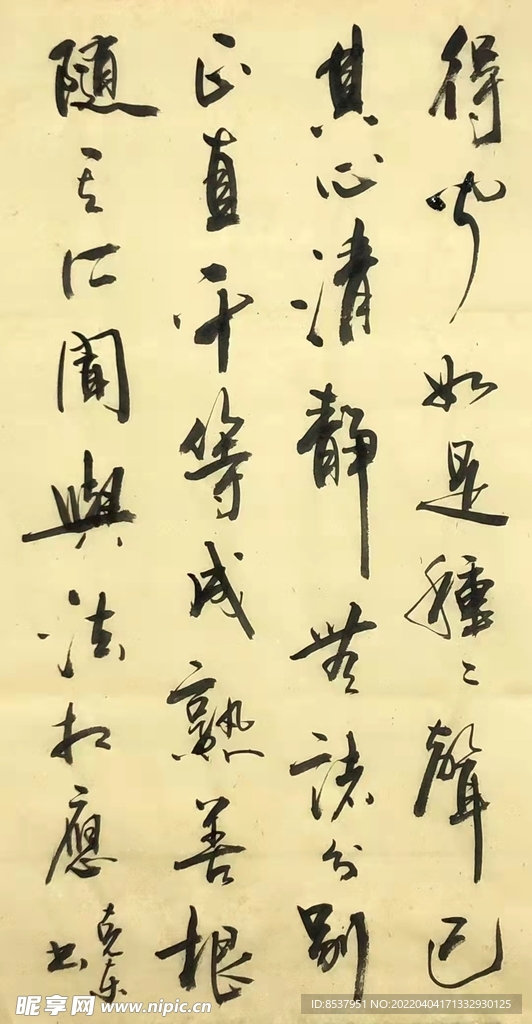 得聞如是種々聲已
其心清靜無諸分別
正直平等成熟善根
隨其所聞與法相應
克东书
昵享网 www.nipic.cn
ID:8537951 NO:20220404171332930125